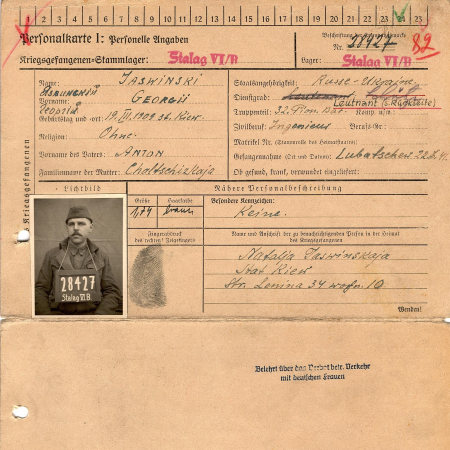 1 2 3 4 5 6 7 8 9 10 11 12 13 14 15 16 17 18 19 20 21 22 23 24 25
Personalkarte I: Personelle Angaben
Kriegsgefangenen-Stammlager: Stalag VI/B
Beschriftung der Erkennungsmarke
Nr. 28427 82
Lager: Stalag VI/B
Name: JASWINSKI
Vorname: GEORGII
Георгий
Geburtstag und -ort: 1909 st. Kiew
Religion: Ohne.
Vorname des Vaters: ANTON
Familienname der Mutter:
Staatsangehörigkeit: Russe-Ukrajne
Dienstgrad: Leutnant
Leutnant
Truppenteil: 32. Pion. Bat. Kom. usw.:
Zivilberuf: Ingenieur Berufs-Gr.:
Matrikel Nr. (Stammrolle des Heimatstaates):
Gefangennahme (Ort und Datum):
Ob gesund, krank, verwundet eingeliefert:
Kriegsgefangenen
Lichtbild
28427
Stalag VI B.
Nähere Personalbeschreibung
Größe
1,74
Haarfarbe
braun
Besondere Kennzeichen:
Keine.
Fingerabdruck
des rechten! Zeigefingers
Name und Anschrift der zu benachrichtigenden Person in der Heimat
des Kriegsgefangenen
Natalja Jaswinskaja
Stat Kiew
Str. Lenina 34 wohn. 10
Wenden!
Belehrt über das Verbot betr. Verkehr
mit deutschen Frauen